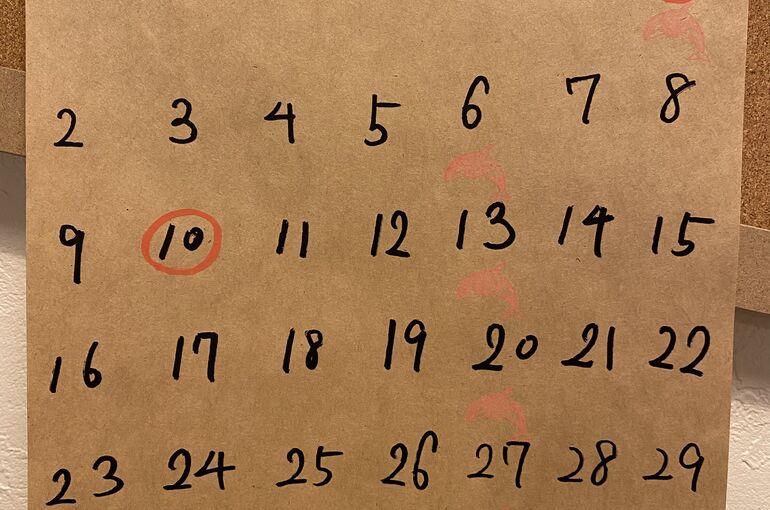 2 3 4 5 6 7 8
9 10 11 12 13 14 15
16 17 18 19 20 21 22
23 24 25 26 27 28 29